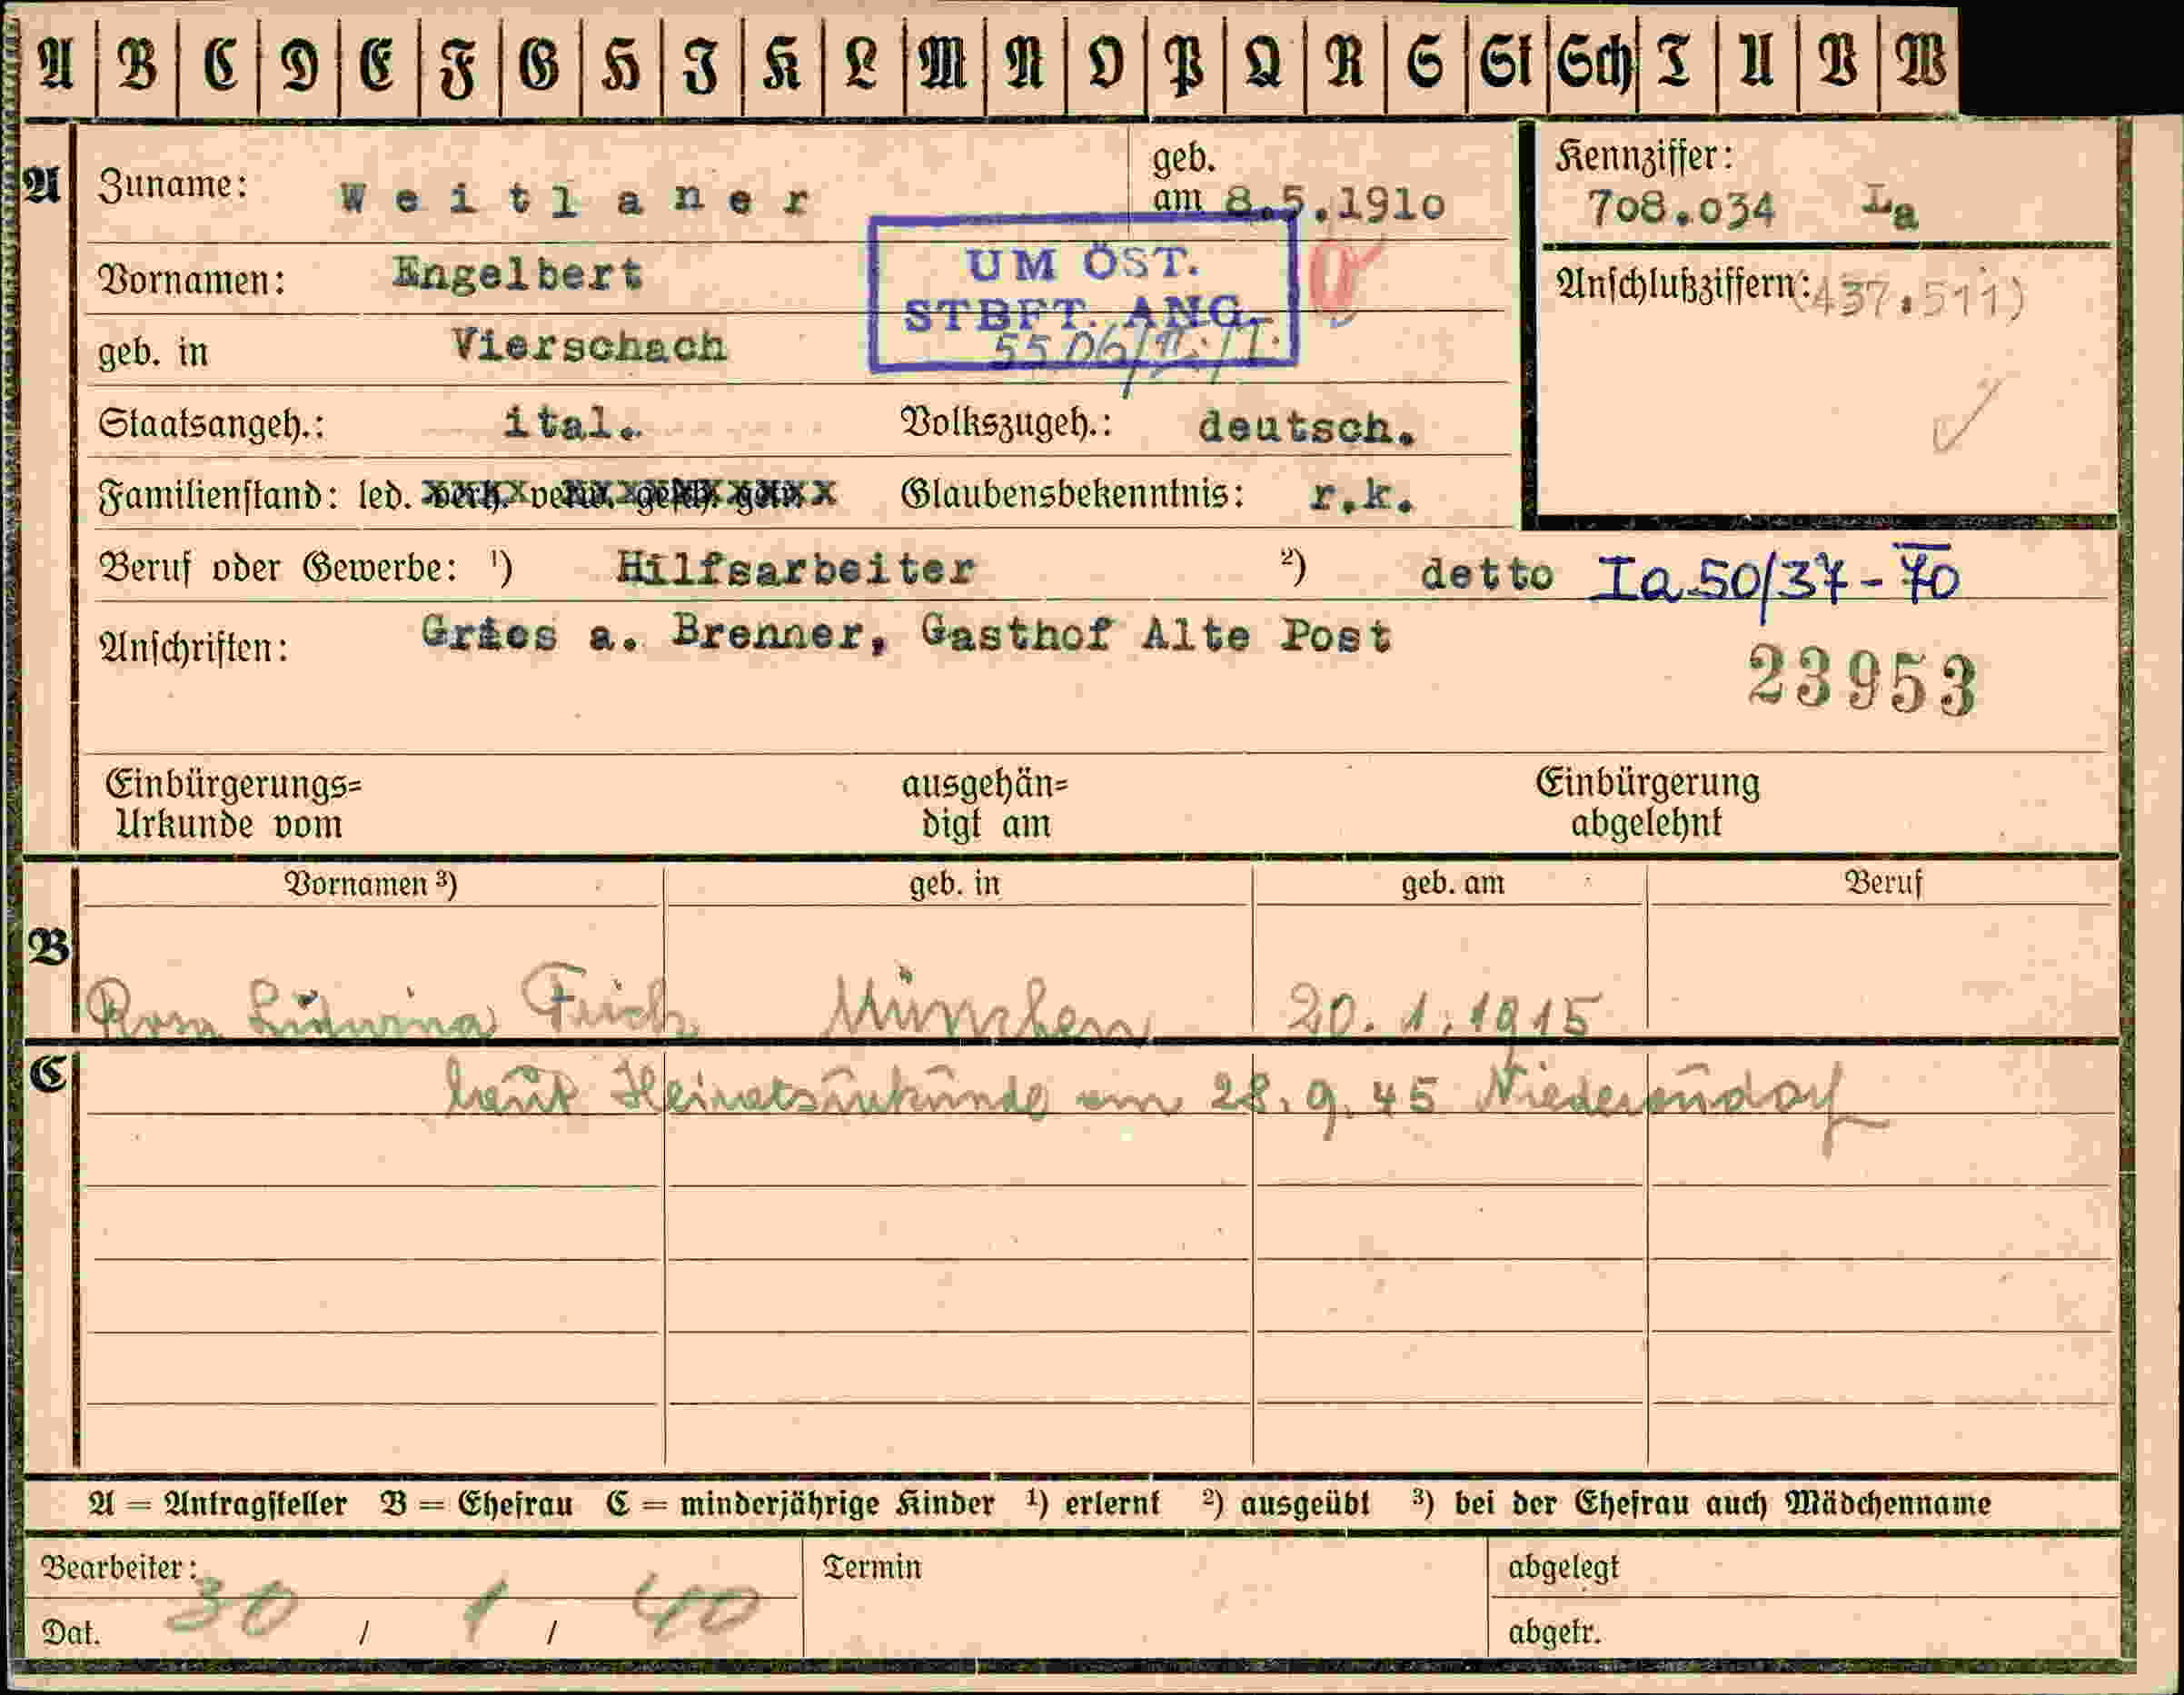 A B C D E F G H J K L M N O P Q R S St Sch T U V W
A Zuname: Weitlaner geb. am 8.5.1910 Kennziffer: 708.034 La
Vornamen: Engelbert UM ÖST. STBFT. ANG. Anschlußziffern: (437.511)
geb. in Vierschach
Staatsangeh.: ital. Volkszugeh.: deutsch.
Familienstand: led. verh. verw. gesch. getr. Glaubensbekenntnis: r.k.
Beruf oder Gewerbe: ¹) Hilfsarbeiter ²) detto Ia 50/37-70
Anschriften: Gries a. Brenner, Gasthof Alte Post
23953
Einbürgerungs= ausgehän= Einbürgerung
Urkunde vom digt am abgelehnt
Vornamen ³) geb. in geb. am Beruf
B
Rosa Ludwina München 20.1.1915
C
laut Heiratsurkunde am 28.9.45 Niederaudorf
A = Antragsteller B = Ehefrau C = minderjährige Kinder ¹) erlernt ²) ausgeübt ³) bei der Ehefrau auch Mädchenname
Bearbeiter: Termin abgelegt
Dat. 30 / 1 / 40 abgetr.